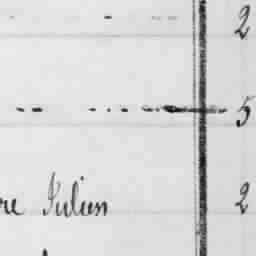 2
5
re Julien 2